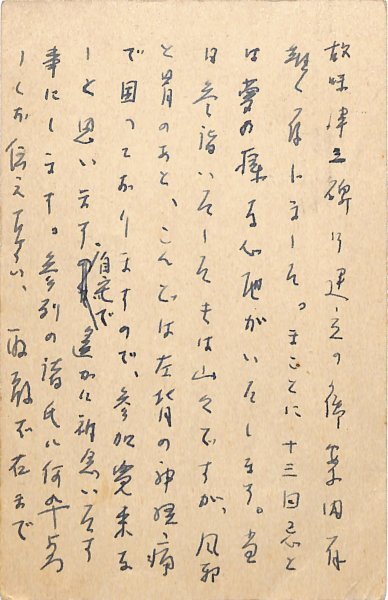 故味津三碑り建立の御案内有
難く存じました。まことに十三回忌と
は夢の様な心地がいたします。当
日参詣いたしたきは山々ですが、風邪
と胃のあと、こんどは左背の神経痛
で困っておりますので、参加出来な
いと思いますので自宅で遙かに祈念いたす
事にします。参列の諸氏に何卒よろ
しくお伝え下さい、取敢不在まで